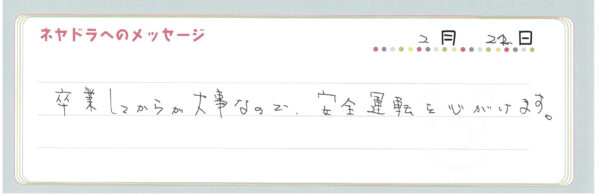 ネヤドラへのメッセージ
2月 21日
卒業してからが大事なので、安全運転を心がけます。